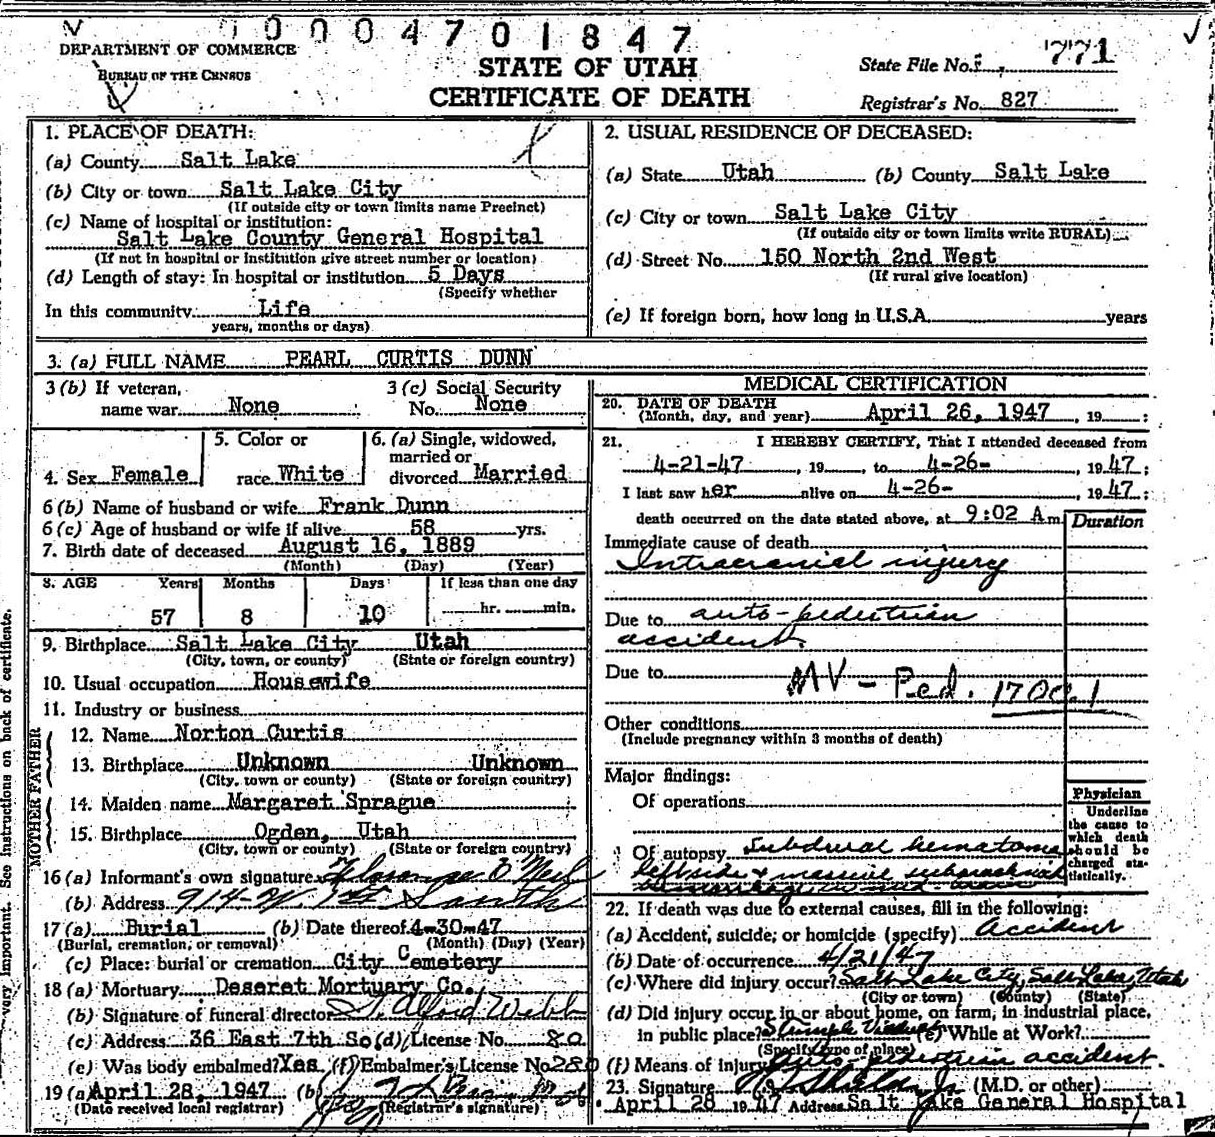 0 0 0 4 7 0 1 8 4 7
DEPARTMENT OF COMMERCE
BUREAU OF THE CENSUS
STATE OF UTAH
CERTIFICATE OF DEATH
State File No. 771
Registrar's No. 827
1. PLACE OF DEATH:
(a) County Salt Lake
(b) City or town Salt Lake City
(If outside city or town limits name Precinct)
(c) Name of hospital or institution:
Salt Lake County General Hospital
(If not in hospital or institution give street number or location)
(d) Length of stay: In hospital or institution 5 Days
(Specify whether
In this community Life
years, months or days)
2. USUAL RESIDENCE OF DECEASED:
(a) State Utah (b) County Salt Lake
(c) City or town Salt Lake City
(If outside city or town limits write RURAL)
(d) Street No. 150 North 2nd West
(If rural give location)
(e) If foreign born, how long in U.S.A. years
3. (a) FULL NAME PEARL CURTIS DUNN
3 (b) If veteran, name war None
3 (c) Social Security No. None
4. Sex Female
5. Color or race White
6. (a) Single, widowed, married or divorced Married
6 (b) Name of husband or wife Frank Dunn
6 (c) Age of husband or wife if alive 58 yrs.
7. Birth date of deceased August 16, 1889
(Month) (Day) (Year)
8. AGE Years Months Days If less than one day
57 8 10 hr. min.
9. Birthplace Salt Lake City Utah
(City, town, or county) (State or foreign country)
10. Usual occupation Housewife
11. Industry or business
FATHER
12. Name Norton Curtis
13. Birthplace Unknown Unknown
(City, town or county) (State or foreign country)
MOTHER
14. Maiden name Margaret Sprague
15. Birthplace Ogden, Utah
(City, town or county) (State or foreign country)
16 (a) Informant's own signature
(b) Address 914-W. 1st South
17 (a) Burial (b) Date thereof 4-30-47
(Burial, cremation, or removal) (Month) (Day) (Year)
(c) Place: burial or cremation City Cemetery
18 (a) Mortuary Deseret Mortuary Co.
(b) Signature of funeral director
(c) Address 36 East 7th So (d) License No. 80
(e) Was body embalmed? Yes (f) Embalmer's License No 280
19 (a) April 28, 1947 (b)
(Date received local registrar) (Registrar's signature)
MEDICAL CERTIFICATION
20. DATE OF DEATH
(Month, day, and year) April 26, 1947 , 19 :
21. I HEREBY CERTIFY, That I attended deceased from
4-21-47 , 19 , to 4-26- , 1947 ;
I last saw her alive on 4-26- , 1947 ;
death occurred on the date stated above, at 9:02 A m
Duration
Immediate cause of death
Intracranial injury
Due to auto-pedestrian
accident
Due to
MV - Ped. 170c.1
Other conditions
(Include pregnancy within 3 months of death)
Major findings:
Of operations
Of autopsy Subdural hematoma
left side & massive subarachnoid
Physician
Underline
the cause to
which death
should be
charged sta-
tistically.
22. If death was due to external causes, fill in the following:
(a) Accident, suicide; or homicide (specify) Accident
(b) Date of occurrence 4/21/47
(c) Where did injury occur? Salt Lake City, Salt Lake, Utah
(City or town) (County) (State)
(d) Did injury occur in or about home, on farm, in industrial place,
in public place? (e) While at Work?
(Specify type of place)
(f) Means of injury Auto pedestrian accident.
23. Signature (M.D. or other)
April 28 1947 Address Salt Lake General Hospital
very important. See instructions on back of certificate.